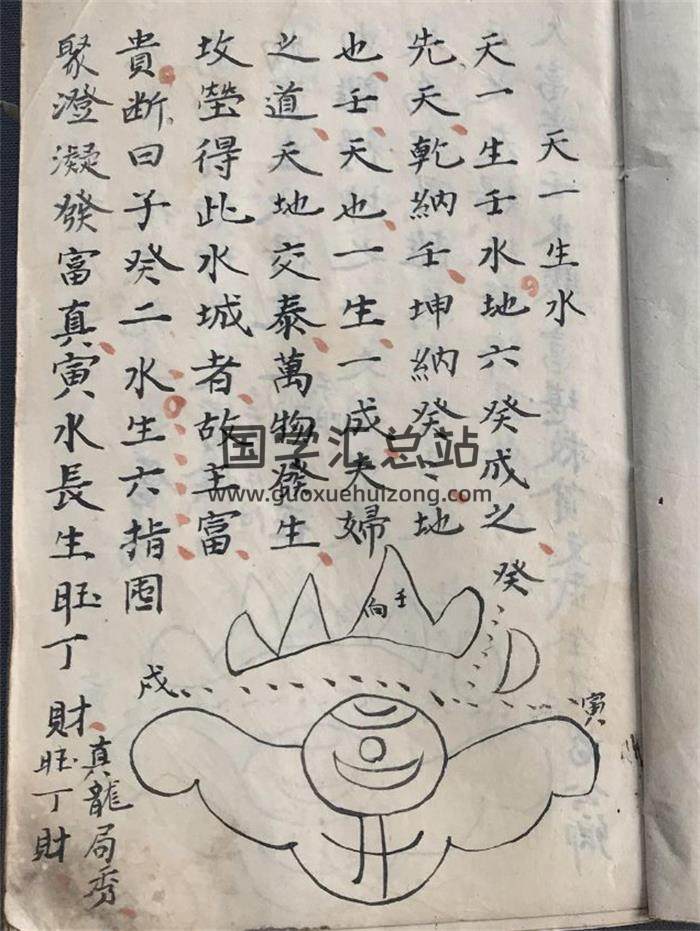 天一生水
天一生壬水地六癸成之
先天乾納壬坤納癸癸地
也壬天也一生一成夫婦
之道天地交泰萬物發生
坟塋得此水城者故主富
貴断曰子癸二水生六指囯
聚澄凝發富真寅水長生旺丁
財真龍局秀
旺丁財
癸
向壬
戌
寅
国学汇总站
www.guoxuehuizong.com